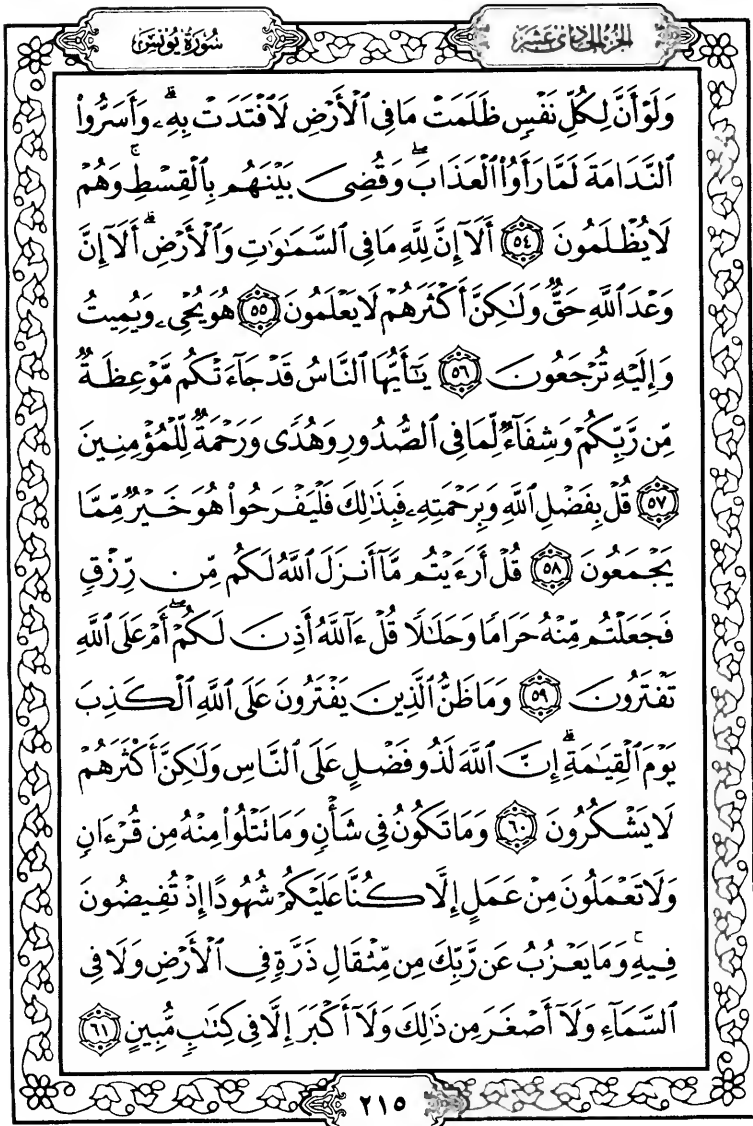 الجزء الحادي عشر
سُورَةُ يُونُسَ
وَلَوْ أَنَّ لِكُلِّ نَفْسٍ ظَلَمَتْ مَا فِي ٱلْأَرْضِ لَٱفْتَدَتْ بِهِۦۗ وَأَسَرُّوا۟
ٱلنَّدَامَةَ لَمَّا رَأَوُا۟ ٱلْعَذَابَۖ وَقُضِىَ بَيْنَهُم بِٱلْقِسْطِۚ وَهُمْ
لَا يُظْلَمُونَ ٥٤ أَلَآ إِنَّ لِلَّهِ مَا فِي ٱلسَّمَٰوَٰتِ وَٱلْأَرْضِۗ أَلَآ إِنَّ
وَعْدَ ٱللَّهِ حَقٌّ وَلَٰكِنَّ أَكْثَرَهُمْ لَا يَعْلَمُونَ ٥٥ هُوَ يُحْىِۦ وَيُمِيتُ
وَإِلَيْهِ تُرْجَعُونَ ٥٦ يَٰٓأَيُّهَا ٱلنَّاسُ قَدْ جَآءَتْكُم مَّوْعِظَةٌ
مِّن رَّبِّكُمْ وَشِفَآءٌ لِّمَا فِي ٱلصُّدُورِ وَهُدًى وَرَحْمَةٌ لِّلْمُؤْمِنِينَ
٥٧ قُلْ بِفَضْلِ ٱللَّهِ وَبِرَحْمَتِهِۦ فَبِذَٰلِكَ فَلْيَفْرَحُوا۟ هُوَ خَيْرٌ مِّمَّا
يَجْمَعُونَ ٥٨ قُلْ أَرَءَيْتُم مَّآ أَنزَلَ ٱللَّهُ لَكُم مِّن رِّزْقٍ
فَجَعَلْتُم مِّنْهُ حَرَامًا وَحَلَٰلًا قُلْ ءَآللَّهُ أَذِنَ لَكُمْۖ أَمْ عَلَى ٱللَّهِ
تَفْتَرُونَ ٥٩ وَمَا ظَنُّ ٱلَّذِينَ يَفْتَرُونَ عَلَى ٱللَّهِ ٱلْكَذِبَ
يَوْمَ ٱلْقِيَٰمَةِۗ إِنَّ ٱللَّهَ لَذُو فَضْلٍ عَلَى ٱلنَّاسِ وَلَٰكِنَّ أَكْثَرَهُمْ
لَا يَشْكُرُونَ ٦٠ وَمَا تَكُونُ فِي شَأْنٍ وَمَا تَتْلُوا۟ مِنْهُ مِن قُرْءَانٍ
وَلَا تَعْمَلُونَ مِنْ عَمَلٍ إِلَّا كُنَّا عَلَيْكُمْ شُهُودًا إِذْ تُفِيضُونَ
فِيهِۚ وَمَا يَعْزُبُ عَن رَّبِّكَ مِن مِّثْقَالِ ذَرَّةٍ فِي ٱلْأَرْضِ وَلَا فِي
ٱلسَّمَآءِ وَلَآ أَصْغَرَ مِن ذَٰلِكَ وَلَآ أَكْبَرَ إِلَّا فِي كِتَٰبٍ مُّبِينٍ ٦١
٢١٥